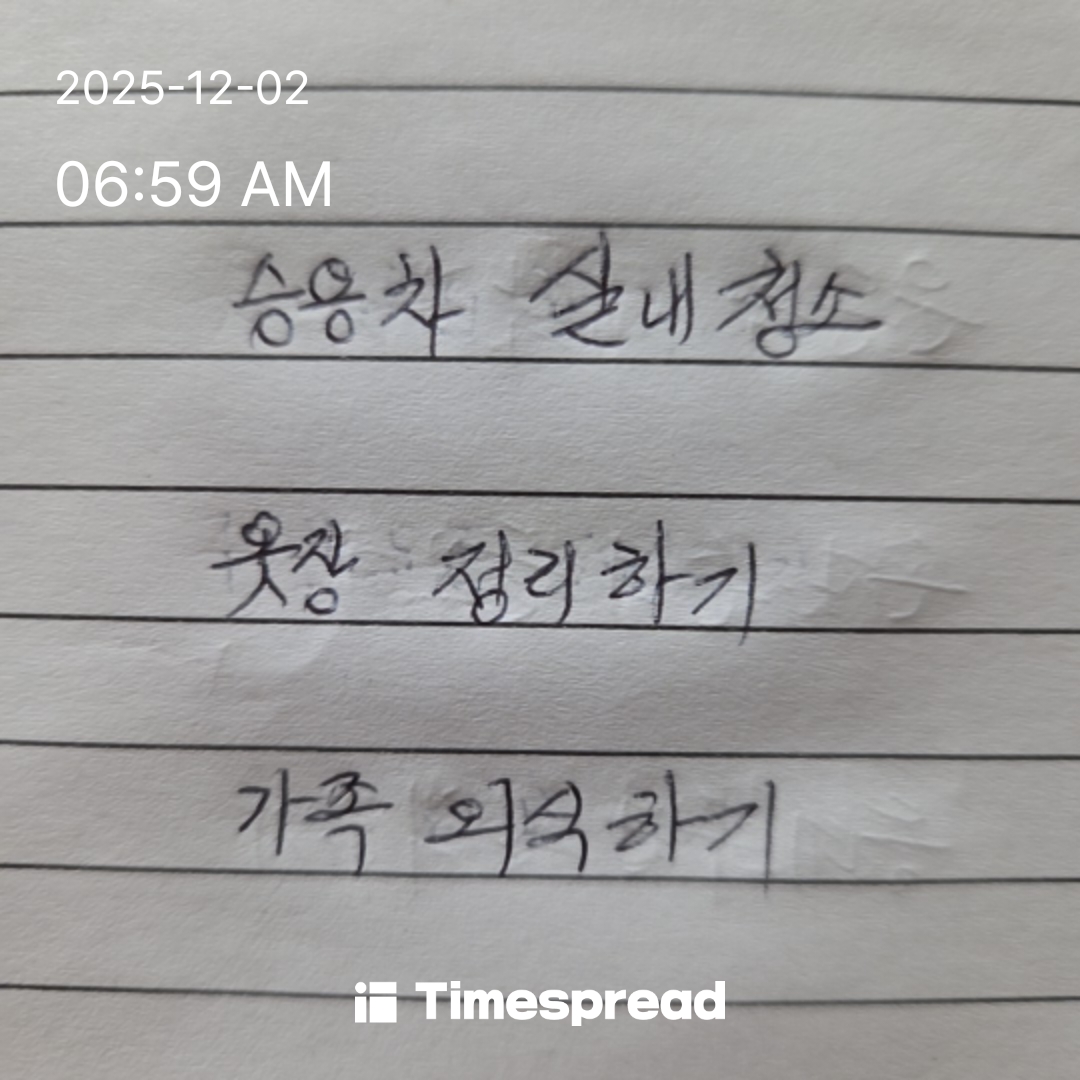 2025-12-02
06:59 AM
승용차 실내청소
옷장 정리하기
가족 외식하기
Timespread